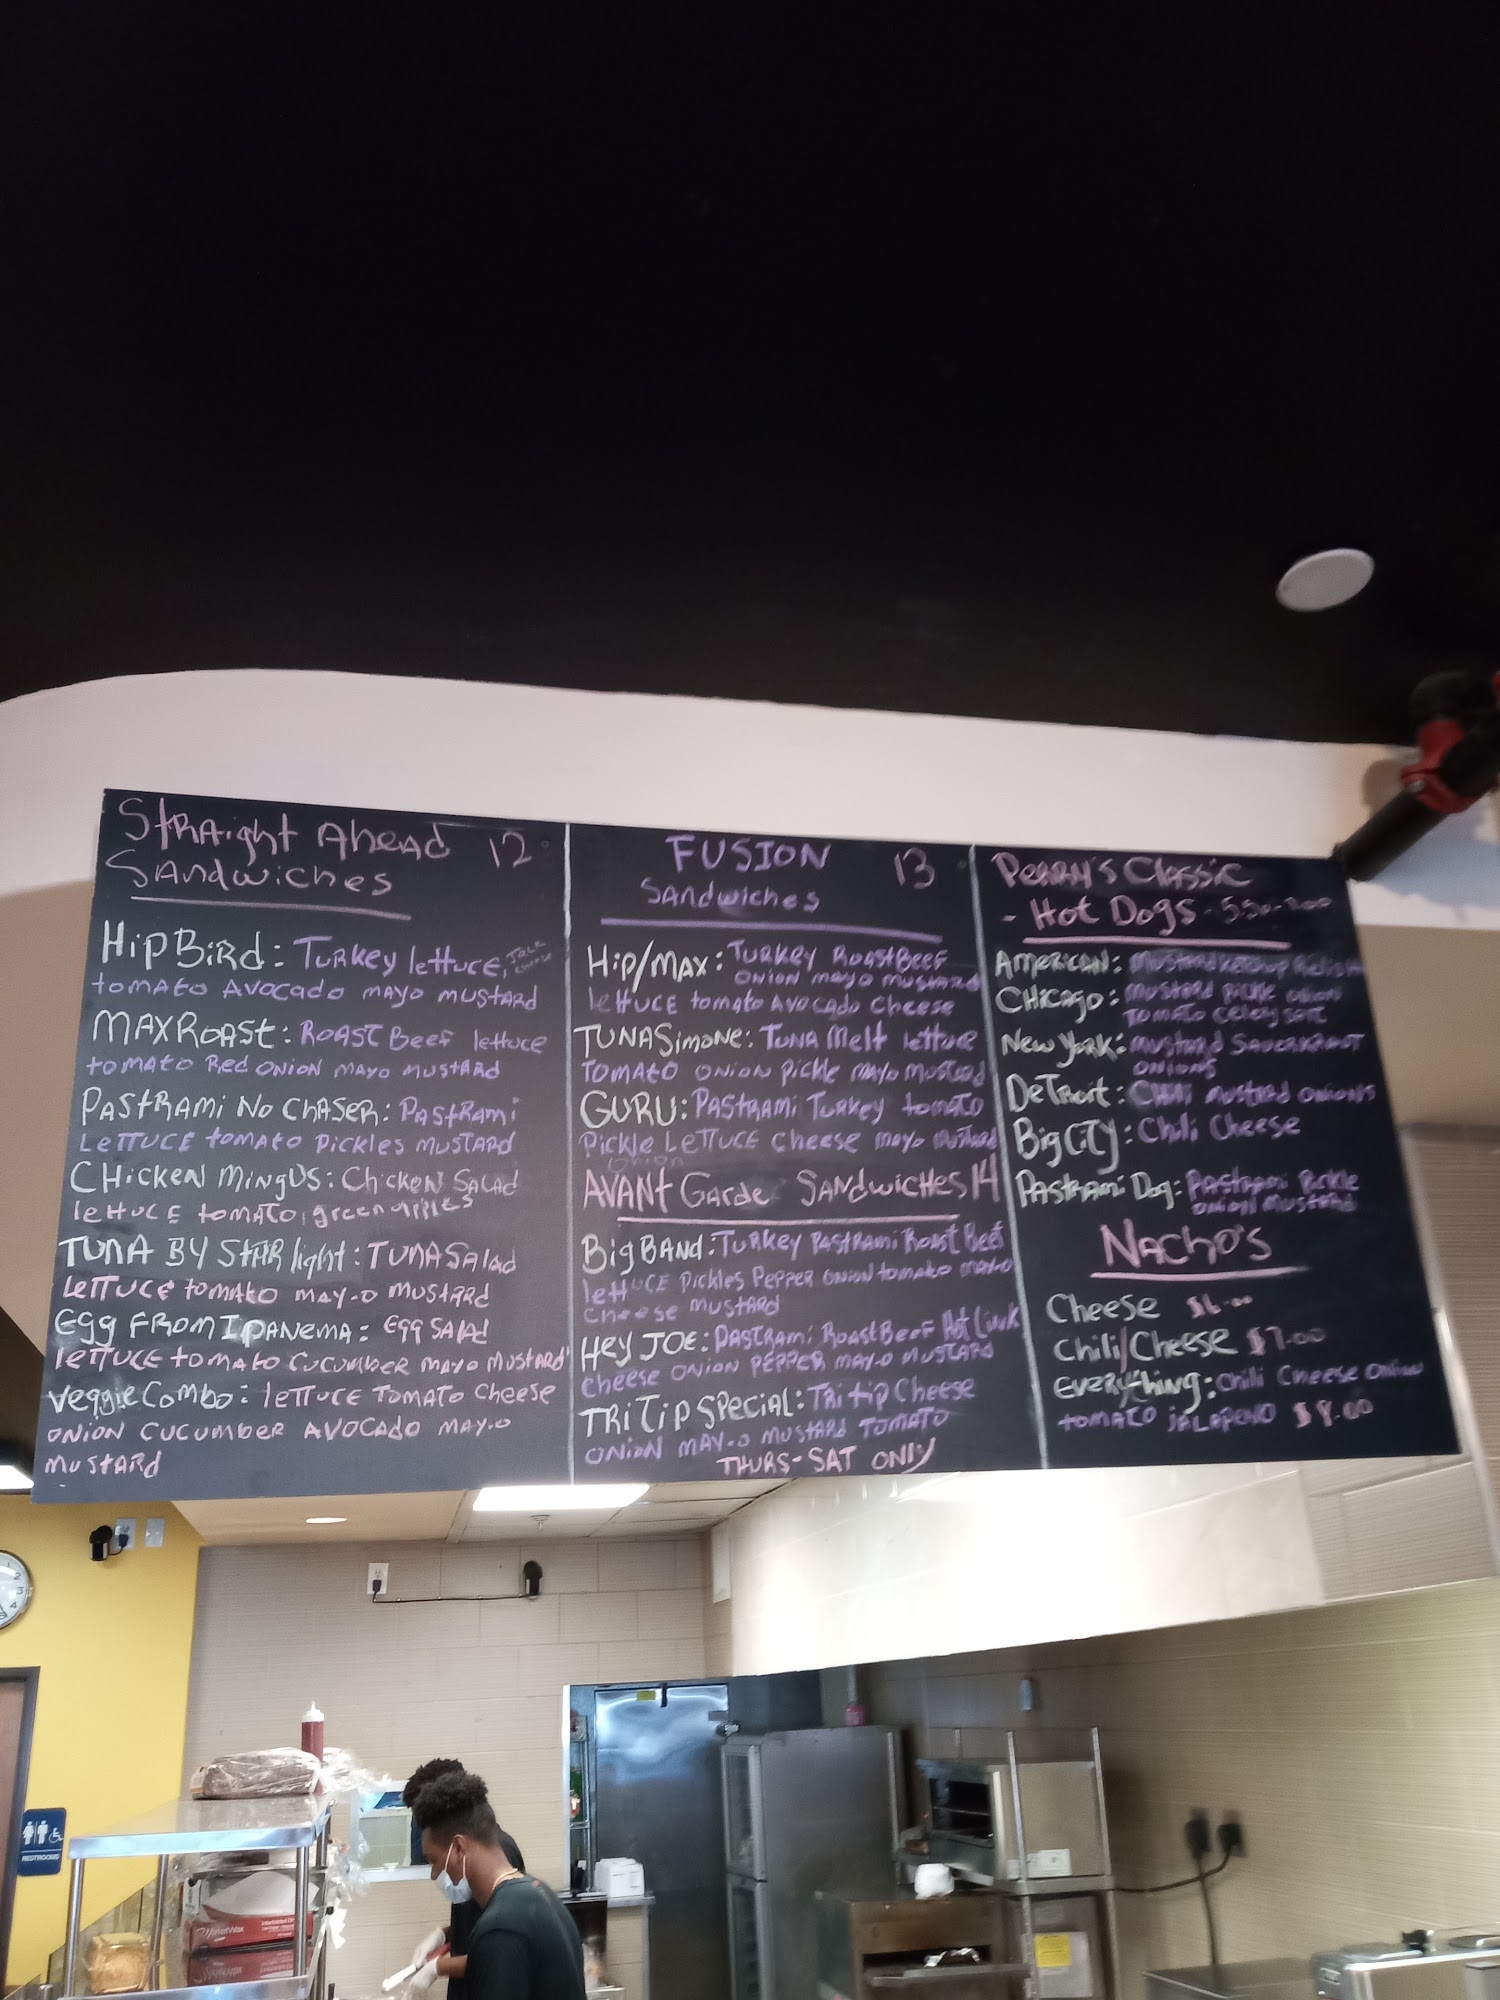 Straight Ahead 12
Sandwiches
Hip Bird: Turkey lettuce,
tomato Avocado mayo mustard
Max Roast: Roast Beef lettuce
tomato Red onion mayo mustard
Pastrami No Chaser: Pastrami
Lettuce tomato Pickles mustard
Chicken Mingus: Chicken Salad
lettuce tomato, green apples
Tuna By Starlight: Tuna Salad
Lettuce tomato may-o mustard
Egg From Ipanema: Egg Salad
lettuce tomato cucumber mayo mustard
Veggie Combo: lettuce Tomato cheese
onion cucumber avocado may.o
mustard
FUSION 13
Sandwiches
Hip/Max: Turkey Roast Beef
onion mayo mustard
lettuce tomato Avocado cheese
Tuna Simone: Tuna Melt lettuce
Tomato onion pickle mayo mustard
GURU: Pastrami Turkey tomato
Pickle Lettuce cheese mayo mustard
onion
Avant Garde Sandwiches 14
Big Band: Turkey Pastrami Roast Beef
lettuce Pickles Pepper onion tomato may-o
cheese mustard
Hey Joe: Pastrami Roast Beef Hot Link
cheese onion pepper may-o mustard
Tri Tip Special: Tri tip Cheese
onion may-o mustard Tomato
THURS-SAT ONLY
Perry's Classic
- Hot Dogs -
American: Mustard Ketchup Relish
Chicago: Mustard pickle onion
tomato celery salt
New York: mustard Sauerkraut
onions
Detroit: Chili mustard onions
Big City: Chili Cheese
Pastrami Dog: Pastrami Pickle
onion mustard
Nacho's
Cheese $6.00
Chili/Cheese $7.00
Everything: Chili Cheese onion
tomato jalapeno $8.00
RESTROOMS